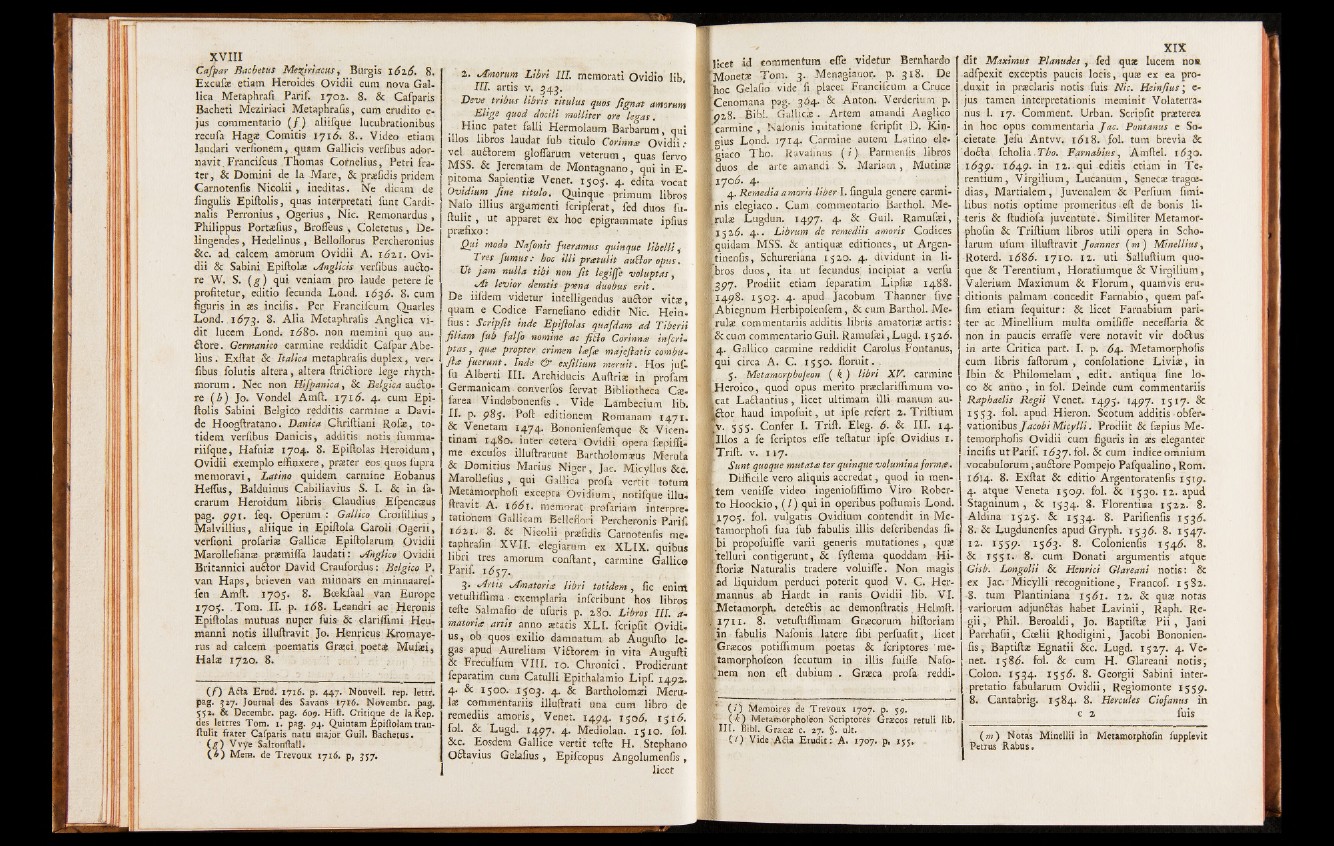 XVIII
Caſpar Bachetus Meziriacus, Burgis 1626. 8.
Excuſæ etiam Heroides Ovidii cum nova Gal-
lica Metaphraſi Pariſ. 1702. 8. & Caſparis
Bacheti Meziriaci Metaphraſis, cum erudito e-
jus commentario (f) aliiſque lucubrationibus
recuſa Hagæ Comitis 1716. 8.. Video etiam
laudari verſionem, quam Gallicis verſibus ador-
navit Franciſcus Thomas Cornelius, Petri fra-
ter, & Domini de la Mare, & præſidis pridem
Carnotenſis Nicolii, ineditas. Ne dicam de
ſingulis Epiſtolis, quas interpretati ſunt Cardi-
nalis Perronius, Ogerius, Nic. Remonardus,
Philippus Portæſius, Broſſeus, Coletetus, De-
lingendes, Hedelinus, Belloflorus Percheronius
&c. ad calcem amorum Ovidii A. 1621. Ovi-
dii & Sabini Epiſtolæ Anglicis verſibus aucto-
re W. S. (g) qui veniam pro laude petere ſe
profitetur, editio ſecunda Lond. 1636. 8. cum
figuris in æs inciſis. Per Franciſcum Quarles
Lond. 1673. 8. Alia Metaphraſis Anglica vi-
dit lucem Lond. 1680. non memini quo au-
ctore. Germanico carmine reddidit Caſpar Abe-
lius. Exſtat & Italica metaphraſis duplex, ver-
ſibus ſolutis altera, altera ſtrictiore lege rhyth-
morum. Nec non Hiſpanica, & Belgica aucto-
re (h) Jo. Vondel Amſt. 1716. 4. cum Epi-
ſtolis Sabini Belgico redditis carmine a Davi-
de Hoogſtratano. Danica Chriſtiani Roſæ, to-
tidem verſibus Danicis, additis notis ſumma-
riiſque, Hafniæ 1704. 8. Epiſtolas Heroidum,
Ovidii exemplo effinxere, præter eos quos ſupra
memoravi, Latino quidem carmine Eobanus
Heſſus, Balduinus Cabiliavius S. I. & in ſa-
crarum Heroidum libris Claudius Eſpencæus
pag. 991. ſeq. Operum: Gallico Croiſillius,
Malvillius, aliique in Epiſtola Caroli Ogerii,
verſioni proſariæ Gallicæ Epiſtolarum Ovidii
Marolleſianæ præmiſſa laudati: Anglico Ovidii
Britannici auctor David Craufordus: Belgico P.
van Haps, brieven van minnars en minnaareſ-
ſen Amſt. 1705. 8. Boekſaal van Europe
1705. Tom. II. p. 168. Leandri ac Heronis
Epiſtolas mutuas nuper ſuis & clariſſimi Heu-
manni notis illuſtravit Jo. Henricus Kromaye-
rus ad calcem poematis Græci poetæ Muſæi,
Halæ 1720. 8.
(f) Acta Erud. 1716. p. 447. Nouvell. rep. lettr.
pag. 527. Journal des Savans 1716. Novembr. pag.
552. & Decembr. pag. 609. Hiſt. Critique de la Rep.
des lettres Tom. 1. pag. 94. Quintam Epiſtolam tran-
ſtulit frater Caſparis natu major Guil. Bachetus.
(g) Vvye Saltonſtall.
(h) Mem. de Trevoux 1716. p. 357.
2. Amorum Libri III. memorati Ovidio lib.
III. artis v. 343.
Deve tribus libris titulus quos ſignat amorum
Elige quod docili molliter ore legas.
Hinc patet falli Hermolaum Barbarum, qui
illos libros laudat ſub titulo Corinnæ Ovidii:
vel auctorem gloſſarum veterum, quas ſervo
MSS. & Jeremiam de Montagnano, qui in E-
pitoma Sapientiæ Venet. 1505. 4. edita vocat
Ovidium ſine titulo. Quinque primum libros
Naſo illius argumenti ſcripſerat, ſed duos ſu-
ſtulit, ut apparet ex hoc epigrammate ipſius
præfixo:
Qui modo Naſonis fueramus quinque libelli,
Tres ſumus: hoc illi prætulit auctor opus.
Ut jam nulla tibi non ſit legiſſe voluptas,
At levior demtis pœna duobus erit.
De iiſdem videtur intelligendus auctor vitæ,
quam e Codice Farneſiano edidit Nic. Hein-
ſius: Scripſit inde Epiſtolas quaſdam ad Tiberii
filiam ſub falſo nomine ac ficto Corinnæ inſcri-
ptas, quæ propter crimen læſæ majeſtatis combu-
ſtæ fuerunt. Inde & exſilium meruit. Hos juſ-
ſu Alberti III. Archiducis Auſtriæ in proſam
Germanicam converſos ſervat Bibliotheca Cæ-
ſarea Vindobonenſis. Vide Lambecium lib.
II. p. 985. Poſt editionem Romanam 1471.
& Venetam 1474. Bononienſemque & Vicen-
tinam 1480. inter cetera Ovidii opera ſæpiſſi-
me excuſos illuſtrarunt Bartholomæus Merula
& Domitius Marius Niger, Jac. Micyllus &c.
Marolleſius, qui Gallica proſa vertit totum
Metamorphoſi excepta Ovidium, notiſque illu-
ſtravit A. 1661. memorat proſariam interpre-
tationem Gallicam Belleflori Percheronis Pariſ.
1621. 8. & Nicolii præſidis Carnotenſis me-
taphraſin XVII. elegiarum ex XLIX. quibus
libri tres amorum conſtant, carmine Gallico
Pariſ. 1657.
3. Artis Amatoriæ libri totidem, ſic enim
vetuſtiſſima exemplaria inſcribunt hos libros
teſte Salmaſio de uſuris p. 280. Libros III. a-
matoriæ artis anno ætatis XLI. ſcripſit Ovidi-
us, ob quos exilio damnatum ab Auguſto le-
gas apud Aurelium Victorem in vita Auguſti
& Freculfum VIII. 10. Chronici. Prodierunt
ſeparatim cum Catulli Epithalamio Lipſ. 1492.
4. & 1500. 1503. 4. & Bartholomæi Meru-
læ commentariis illuſtrati una cum libro de
remediis amoris, Venet. 1494. 1506. 1516.
fol. & Lugd. 1497. 4. Mediolan. 1510. fol.
&c. Eosdem Gallice vertit teſte H. Stephano
Octavius Gelaſius, Epiſcopus Angolumenſis,
licet
XIX
licet id commentum eſſe videtur Bernhardo
Monetæ Tom. 3. Menagianor. p. 318. De
hoc Gelaſio vide ſi placet Franciſcum a Cruce
Cenomana pag. 364. & Anton. Verderium p.
928. Bibl. Gallicæ. Artem amandi Anglico
carmine, Naſonis imitatione ſcripſit D. Kin-
gius Lond. 1714. Carmine autem Latino ele-
giaco Tho. Ravaſinus (i) Parmenſis libros
duos de arte amandi S. Mariam, Mutinæ
1706. 4.
4. Remedia amoris liber I. ſingula genere carmi-
nis elegiaco. Cum commentario Barthol. Me-
rulæ Lugdun. 1497. 4. & Guil. Ramuſæi,
1526. 4.. Librum de remediis amoris Codices
quidam MSS. & antiquæ editiones, ut Argen-
tinenſis, Schureriana 1520. 4. dividunt in li-
bros duos, ita ut ſecundus incipiat a verſu
397. Prodiit etiam ſeparatim Lipſiæ 1488.
1498. 1503. 4. apud Jacobum Thanner ſive
Abiegnum Herbipolenſem, & cum Barthol. Me-
rulæ commentariis additis libris amatoriæ artis:
& cum commentario Guil. Ramuſæi, Lugd. 1526.
4. Gallico carmine reddidit Carolus Fontanus,
qui circa A. C. 1550. floruit.
5. Metamorphoſeon (k) libri XV. carmine
Heroico, quod opus merito præclariſſimum vo-
cat Lactantius, licet ultimam illi manum au-
ctor haud impoſuit, ut ipſe refert 2. Triſtium
v. 555. Confer I. Triſt. Eleg. 6. & III. 14.
Illos a ſe ſcriptos eſſe teſtatur ipſe Ovidius 1.
Triſt. v. 117.
Sunt quoque mutatæ ter quinque volumina formæ.
Difficile vero aliquis accredat, quod in men-
tem veniſſe video ingenioſiſſimo Viro Rober-
to Hoockio, (l) qui in operibus poſtumis Lond.
1705. fol. vulgatis Ovidium contendit in Me-
tamorphoſi ſua ſub fabulis illis deſcribendas ſi-
bi propoſuiſſe varii generis mutationes, quæ
telluri contigerunt, & ſyſtema quoddam Hi-
ſtoriæ Naturalis tradere voluiſſe. Non magis
ad liquidum perduci poterit quod V. C. Her-
mannus ab Hardt in ranis Ovidii lib. VI.
Metamorph. detectis ac demonſtratis Helmſt.
1711. 8. vetuſtiſſimam Græcorum hiſtoriam
in fabulis Naſonis latere ſibi perſuaſit, licet
Græcos potiſſimum poetas & ſcriptores me-
tamorphoſeon ſecutum in illis fuiſſe Naſo-
nem non eſt dubium. Græca proſa reddi-
(i) Memoires de Trevoux 1707. p. 59.
(k) Metamorphoſeon Scriptores Græcos retuli lib.
III. Bibl. Græcæ c. 27. §. ult.
(l) Vide Acta Erudit: A. 1707. p. 155.
dit Maximus Planudes, ſed quæ lucem non
adſpexit exceptis paucis locis, quæ ex ea pro-
duxit in præclaris notis ſuis Nic. Heinſius; e-
jus tamen interpretationis meminit Volaterra-
nus l. 17. Comment. Urban. Scripſit præterea
in hoc opus commentaria Jac. Pontanus e So-
cietate Jeſu Antvv. 1618. fol. tum brevia &
docta ſcholia Tho. Farnabius, Amſtel. 1630.
1639. 1649. in 12. qui editis etiam in Te-
rentium, Virgilium, Lucanum, Senecæ tragœ-
dias, Martialem, Juvenalem & Perſium ſimi-
libus notis optime promeritus eſt de bonis li-
teris & ſtudioſa juventute. Similiter Metamor-
phoſin & Triſtium libros utili opera in Scho-
larum uſum illuſtravit Joannes (m) Minellius,
Roterd. 1686. 1710. 12. uti Salluſtium quo-
que & Terentium, Horatiumque & Virgilium,
Valerium Maximum & Florum, quamvis eru-
ditionis palmam concedit Farnabio, quem paſ-
ſim etiam ſequitur: & licet Farnabium pari-
ter ac Minellium multa omiſiſſe neceſſaria &
non in paucis erraſſe vere notavit vir doctus
in arte Critica part. I. p. 64. Metamorphoſis
cum libris faſtorum, conſolatione Liviæ, in
Ibin & Philomelam, edit. antiqua ſine lo-
co & anno, in fol. Deinde cum commentariis
Raphaelis Regii Venet. 1495. 1497. 1517. &
1553. fol. apud Hieron. Scotum additis obſer-
vationibus Jacobi Micylli. Prodiit & ſæpius Me-
temorphoſis Ovidii cum figuris in æs eleganter
inciſis ut Pariſ. 1637. fol. & cum indice omnium
vocabulorum, auctore Pompejo Paſqualino, Rom.
1614. 8. Exſtat & editio Argentoratenſis 1519.
4. atque Veneta 1509. fol. & 1530. 12. apud
Stagninum, & 1534. 8. Florentina 1522. 8.
Aldina 1525. & 1534. 8. Pariſienſis 1536.
8. & Lugdunenſes apud Gryph. 1536. 8. 1547.
12. 1559. 1563. 8. Colonienſis 1546. 8.
& 1551. 8. cum Donati argumentis atque
Gisb. Longolii & Henrici Glareani notis: &
ex Jac. Micylli recognitione, Francof. 1582.
8. tum Plantiniana 1561. 12. & quæ notas
variorum adjunctas habet Lavinii, Raph. Re-
gii, Phil. Beroaldi, Jo. Baptiſtæ Pii, Jani
Parrhaſii, Cœlii Rhodigini, Jacobi Bononien-
ſis, Baptiſtæ Egnatii &c. Lugd. 1527. 4. Ve-
net. 1586. fol. & cum H. Glareani notis,
Colon. 1534. 1556. 8. Georgii Sabini inter-
pretatio fabularum Ovidii, Regiomonte 1559.
8. Cantabrig. 1584. 8. Hercules Ciofanus in
c 2 ſuis
(m) Notas Minellii in Metamorphoſin ſupplevit
Petrus Rabus.